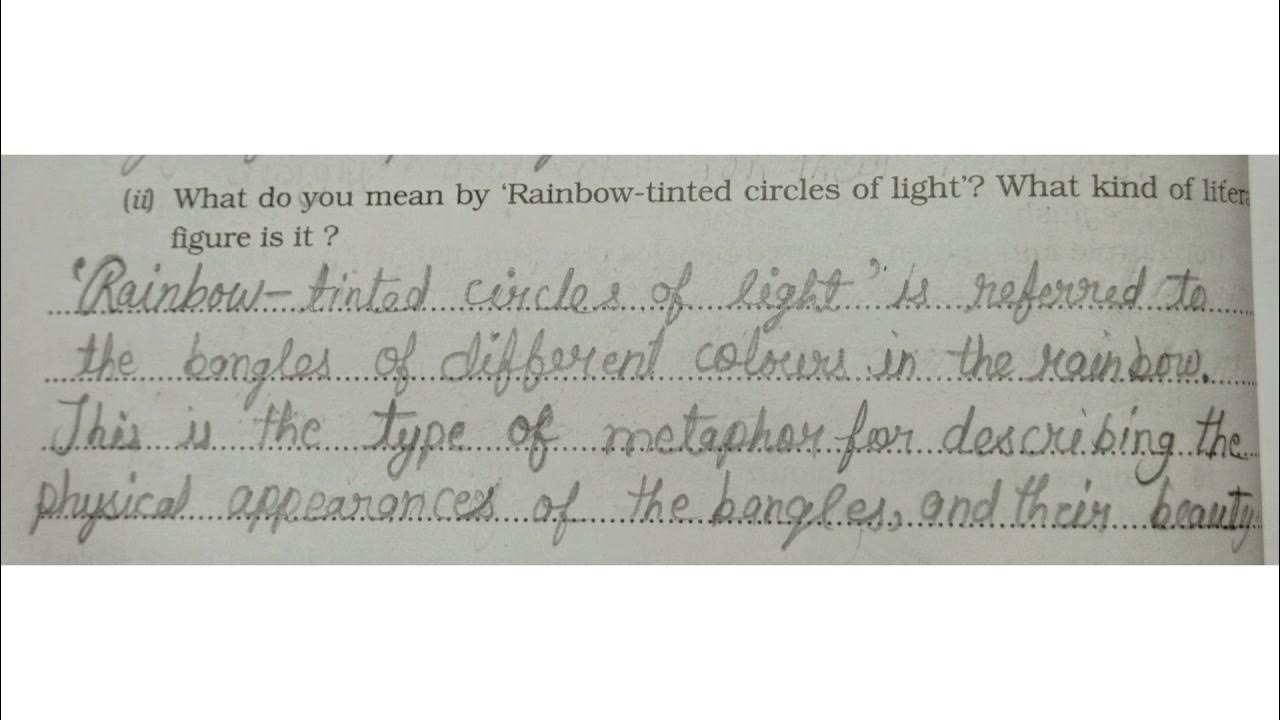 (ii) What do you mean by 'Rainbow-tinted circles of light'? What kind of litera
figure is it ?
'Rainbow-tinted circles of light' is referred to
the bangles of different colours in the rainbow.
This is the type of metaphor for describing the
physical appearances of the bangles, and their beauty